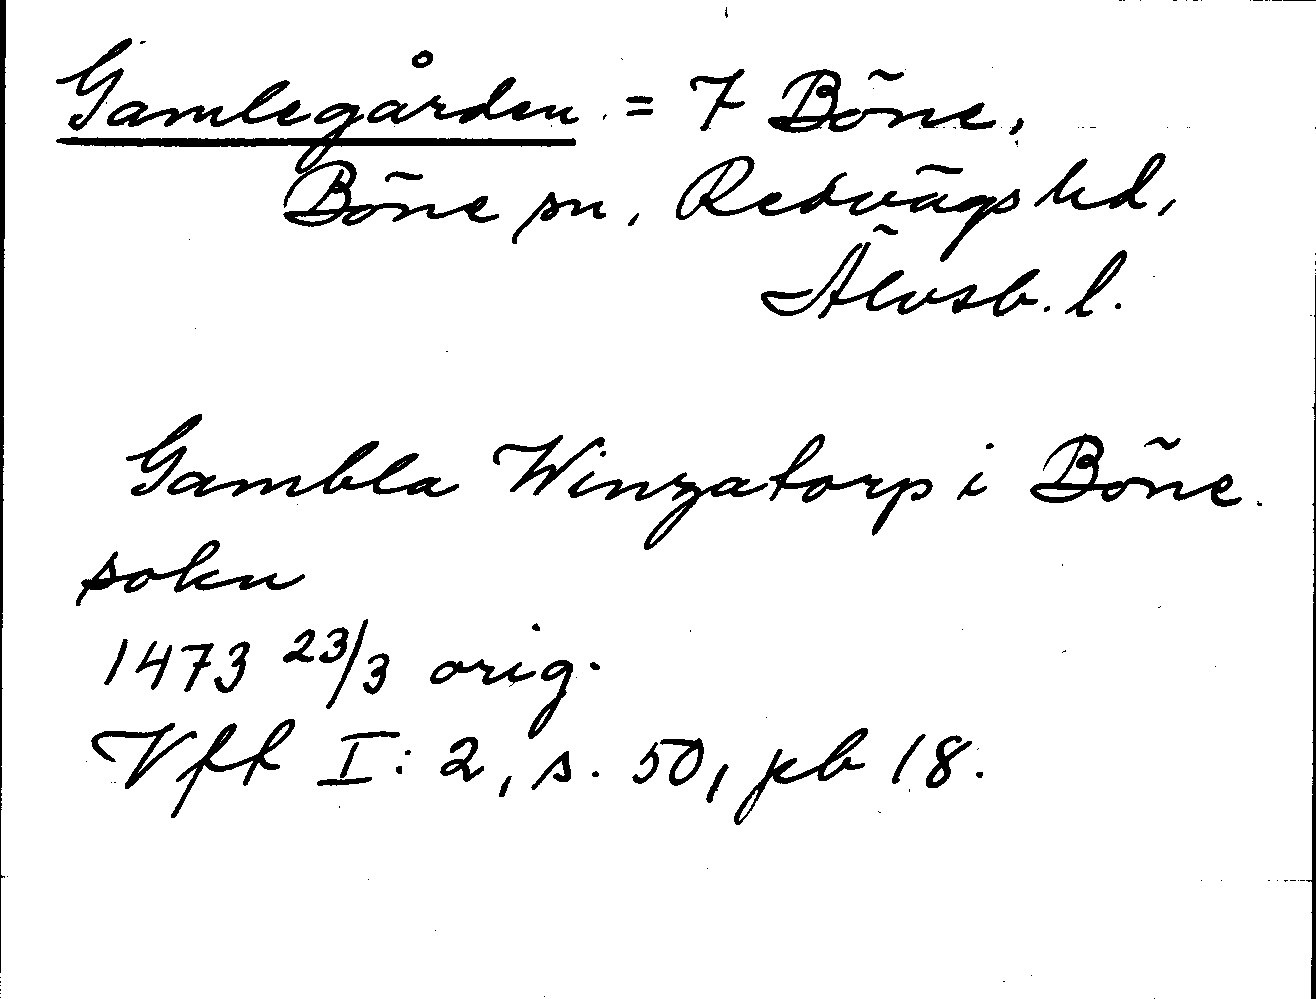 Gamlegården = 7 Böne,
Böne sn, Redvägs hd,
Älvsb. l.
Gambla Winzatorp i Böne
sokn
1473 23/3 orig.
Vff I: 2, s. 50, pb 18.